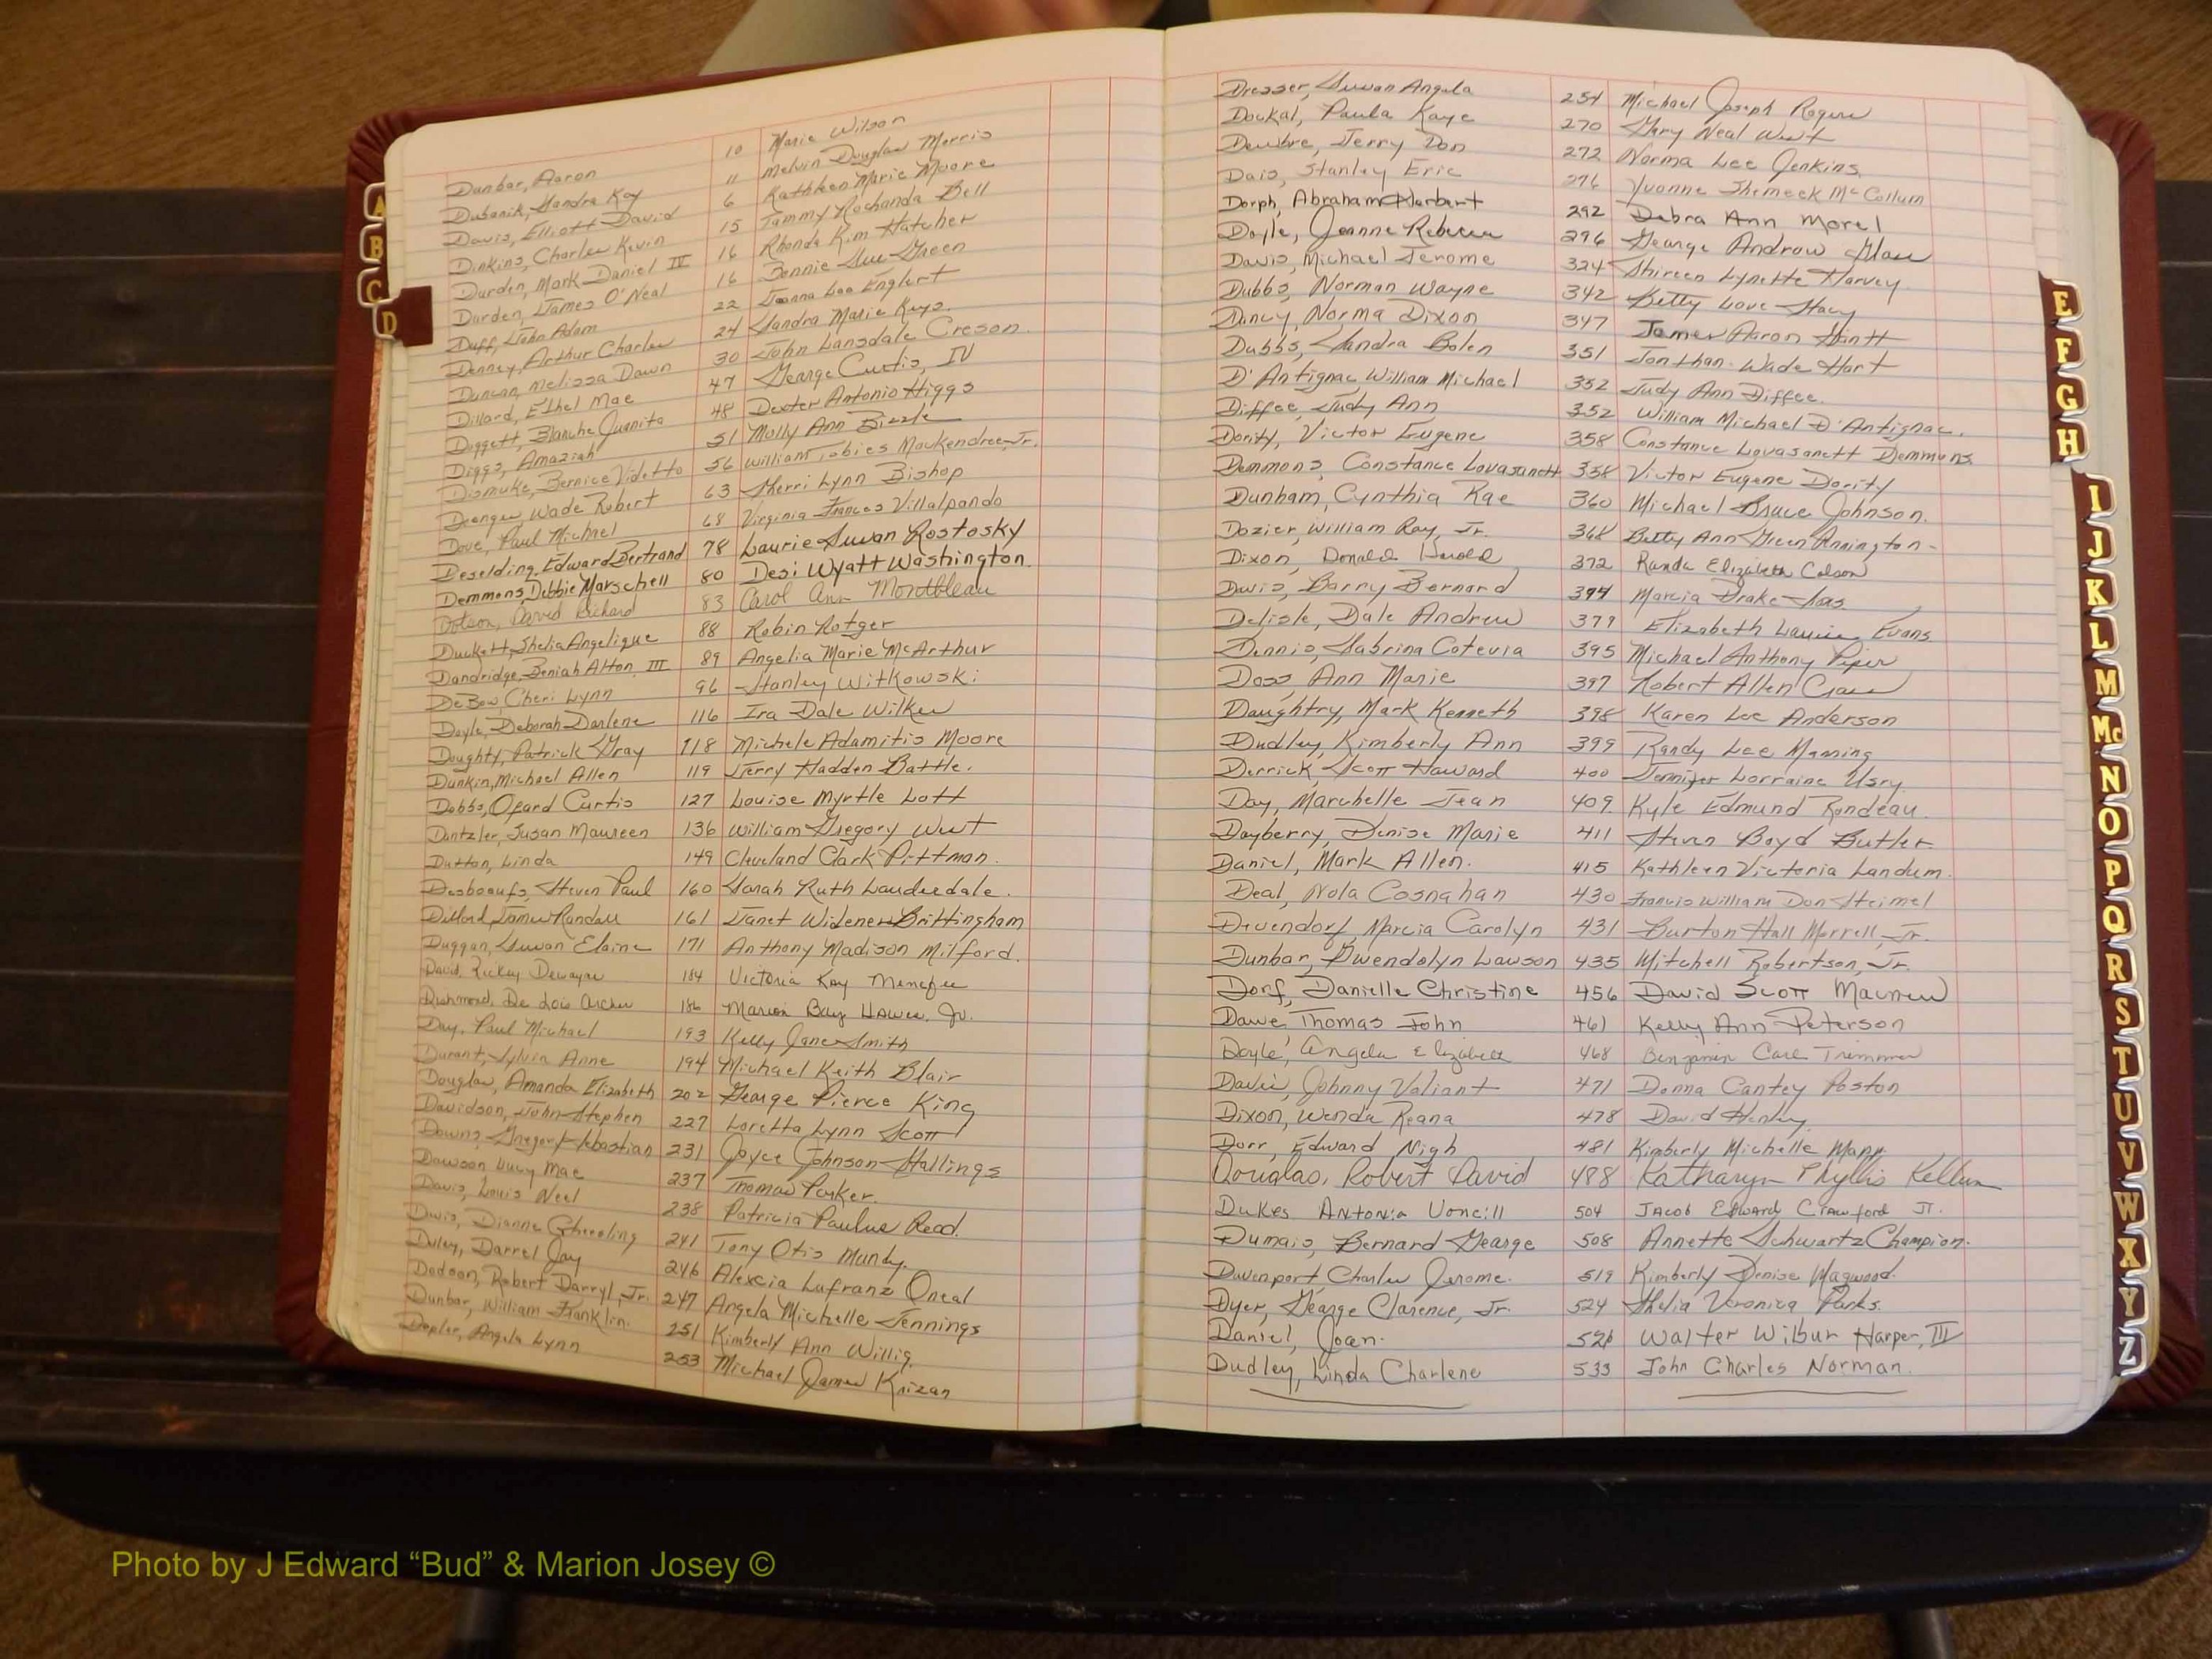 Dunbar, Aaron 10 Marie Wilson
Dubanik, Sandra Kay 11 Melvin Douglas Morris
Davis, Elliott David 6 Kathleen Marie Moore
Dinkins, Charles Kevin 15 Tammy Rochanda Bell
Durden, Mark Daniel IV 16 Rhonda Kim Hatcher
Durden, James O'Neal 16 Bennie Sue Green
Duff, John Adam 22 Joanna Lee Englert
Denney, Arthur Charles 24 Sandra Marie Keys.
Duncan, Melissa Dawn 30 John Lansdale Creson.
Dillard, Ethel Mae 47 George Curtis, IV
Doggett, Blanche Juanita 48 Dexter Antonio Higgs
Diggs, Amaziah 51 Molly Ann Bizzle
Dismuke, Bernice Videtto 56 William Tobies Mackendree, Jr.
Wade Robert 63 Sherri Lynn Bishop
Dove, Paul Michael 68 Virginia Frances Villalpando
Deselding, Edward Bertrand 78 Laurie Susan Rostosky
Demmons, Debbie Marschell 80 Desi Wyatt Washington.
Dotson, David Richard 83 Carol Ann
Duckett, Shelia Angelique 88 Robin Rotger
Dandridge, Beniah Alton, III 89 Angelia Marie McArthur
DeBow, Cheri Lynn 96 Stanley Witkowski
Doyle, Deborah Darlene 116 Ira Dale Wilkes
Doughty, Patrick Gray 118 Michele Adamitis Moore
Dunkin, Michael Allen 119 Jerry Hadden Battle.
Dobbs, Ofard Curtis 127 Louise Myrtle Lott
Dantzler, Susan Maureen 136 William Gregory West
Dutton, Linda 149 Cleveland Clark Pittman.
Desboeufs, Steven Paul 160 Sarah Ruth Lauderdale.
Dillard, James Randall 161 Janet Widener Brittingham
Duggan, Susan Elaine 171 Anthony Madison Milford.
David, Rickey Dewayne 184 Victoria Kay Menefee
De Lois Archer 186 Marion Bay Hawes, Jr.
Day, Paul Michael 193 Kelly Jane Smith
Durant, Sylvia Anne 194 Michael Keith Blair
Douglas, Amanda Elizabeth 202 George Pierce King
Davidson, John Stephen 227 Loretta Lynn Scott
Downs, Gregory Sebastian 231 Joyce Johnson Stallings
Dawson Lucy Mae 237 Thomas Parker.
Davis, Louis Neel 238 Patricia Paulus Read.
Davis, Dianne 241 Tony Otis Mundy.
Duley, Darrel Jay 246 Alexcia Lafranz Oneal
Dodson, Robert Darryl, Jr. 247 Angela Michelle Jennings
Dunbar, William Franklin. 251 Kimberly Ann Willig.
Depler, Angela Lynn 253 Michael James Krizan
Dresser, Susan Angela 254 Michael Joseph Rogers
Doukal, Paula Kaye 270 Gary Neal West
Deubre, Jerry Don 272 Norma Lee Jenkins.
Dais, Stanley Eric 276 Yvonne Shemeek McCollum
Dorph, Abraham Herbert 292 Debra Ann Morel
Doyle, Jeanne Rebecca 296 George Andrew Glass
Davis, Michael Jerome 324 Shireen Lynette Harvey.
Dubbs, Norman Wayne 342 Betty Love Stacy
Dancy, Norma Dixon 347 James Aaron Hantt
Dubbs, Sandra Bolen 351 Jonthan Wade Hart
D'Antignac William Michael 352 Judy Ann Diffee.
Diffee, Judy Ann 352 William Michael D'Antignac.
Dority, Victor Eugene 358 Constance Lovasanett Demmons
Demmons, Constance Lovasanett 358 Victor Eugene Dority
Dunham, Cynthia Rae 360 Michael Bruce Johnson.
Dozier, William Ray, Jr. 368 Betty Ann Green Annington
Dixon, Donald Harold 372 Randa Elizabeth Colson
Davis, Barry Bernard 374 Marcia Drake
Delisle, Dale Andrew 379 Elizabeth Laurie Evans
Dennis, Sabrina Cotevia 395 Michael Anthony Piper
Doss, Ann Marie 397 Robert Allen
Daughtry, Mark Kenneth 398 Karen Lee Anderson
Dudley, Kimberly Ann 399 Randy Lee Manning
Derrick, Scott Howard 400 Jennifer Lorraine Usry
Day, Marchelle Jean 409. Kyle Edmund Rondeau.
Dayberry, Denise Marie 411 Steven Boyd Butler
Daniel, Mark Allen. 415 Kathleen Victoria Landum.
Deal, Nola Cosnahan 430 Francis William Don Steimel
Devendorf, Marcia Carolyn 431 Burton Hall Morrell, Jr.
Dunbar, Gwendolyn Lawson 435 Mitchell Robertson, Jr.
Dorf, Danielle Christine 456 David Scott
Dawe, Thomas John 461 Kelly Ann Peterson
Doyle, Angela Elizabeth 468 Benjamin Carl Trimmer
Davis, Johnny Valiant 471 Donna Cantey Poston
Dixon, Wenda Reana 478 David Henley
Dorr, Edward Nigh 481 Kimberly Michelle Mapp.
Douglas, Robert David 488 Katharyn Phyllis Kellum
Dukes Antonia Voncill 504 Jacob Edward Crawford Jr.
Dumais, Bernard George 508 Annette Schwartz Champion.
Davenport, Charles Jerome. 519 Kimberly Denise Magwood.
Dyer, George Clarence, Jr. 524 Shelia Veronica Parks.
Daniel, Joan. 526 Walter Wilbur Harper, III
Dudley, Linda Charlene 533 John Charles Norman.
A
B
C
D
E
F
G
H
I
J
K
L
M
Mc
N
O
P
Q
R
S
T
U
V
W
X
Y
Z
Photo by J Edward “Bud” & Marion Josey ©